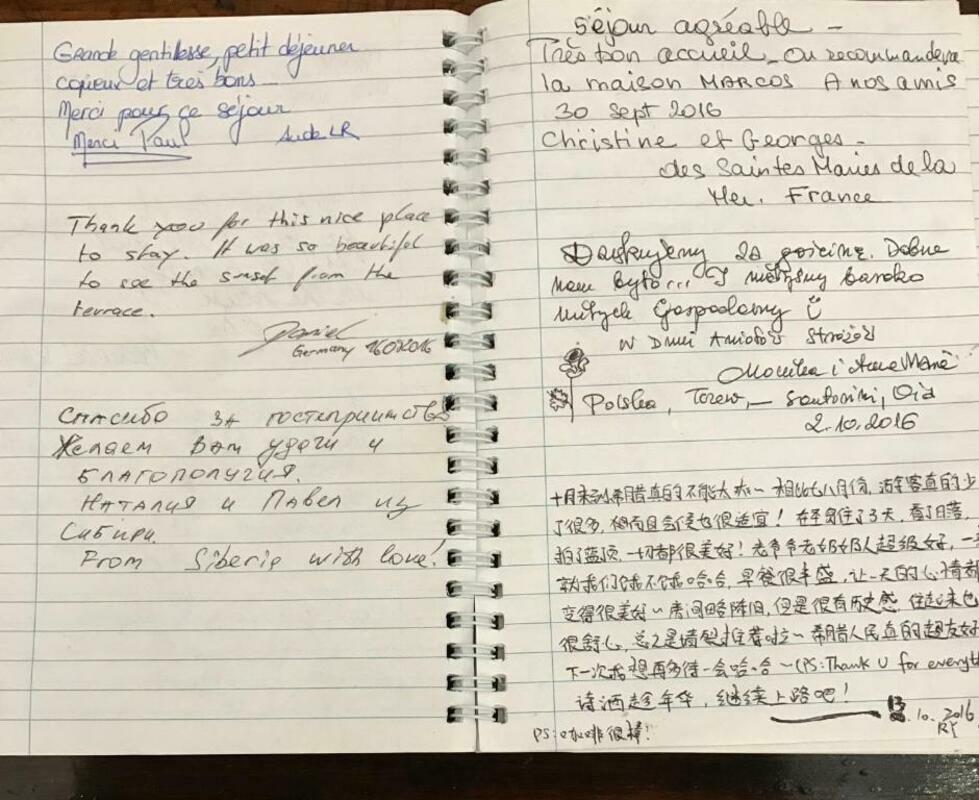 Grande gentillesse, petit déjeuner
copieux et très bons
Merci pour ce séjour
Merci Paul Aude LR
Thank you for this nice place
to stay. It was so beautiful
to see the sunset from the
terrace.
Daniel
Germany
Спасибо за гостеприимство
Желаем Вам удачи и
благополучия.
Наталия и Павел из
Сибири.
From Siberia with love!
Séjour agréable -
Très bon accueil - On recommandera
la maison MARCOS A nos amis
30 sept 2016
Christine et Georges -
des Saintes Maries de la
Mer. France
Dziękujemy za gościnę. Dobrze
nam było... I mieliśmy bardzo
miłych Gospodarzy
w Dniu Aniołów Stróżów
Monika i
Polska, Tczew, - Santorini, Oia
2.10.2016
十月来到希腊真的不能太好~相比七八月份,游客真的少
了很多,而且气候也很适宜!在这里住了3天,看了日落,
拍了蓝顶,一切都很美好!老爷爷老奶奶人超级好,一
我们饿不饿哈哈,早餐很丰盛,让一天的心情都
变得很美好~房间略陈旧,但是很有历史感,住起来也
很舒心,总之是墙裂推荐啦~希腊人民真的超友好
下一次我想再多待一会哈哈~(PS:Thank U for everyth
诗酒趁年华,继续上路吧!
10.2016
RY
PS:咖啡很棒!